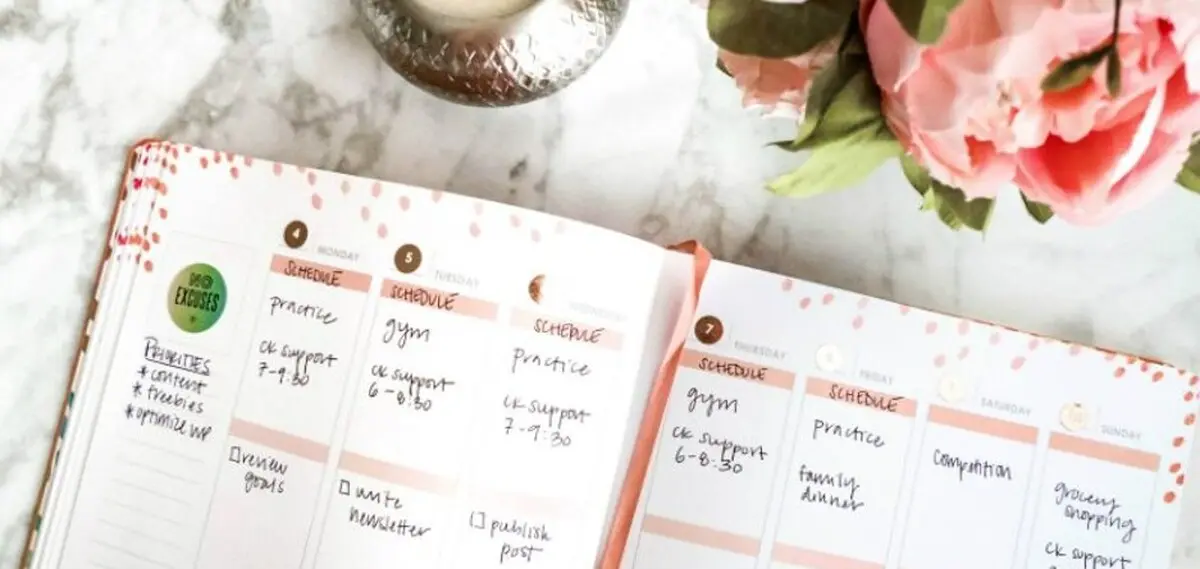 EXCUSES
PRIORITIES
*content
*freebies
*optimize WP
4
MONDAY
SCHEDULE
practice
ck support
7-9:30
review
goals
5
TUESDAY
SCHEDULE
gym
ck support
6-8:30
write
newsletter
WEDNESDAY
SCHEDULE
practice
ck support
7-9:30
publish
post
7
THURSDAY
SCHEDULE
gym
ck support
6-8:30
FRIDAY
SCHEDULE
practice
family
dinner
SATURDAY
Competition
SUNDAY
grocery
shopping
ck support